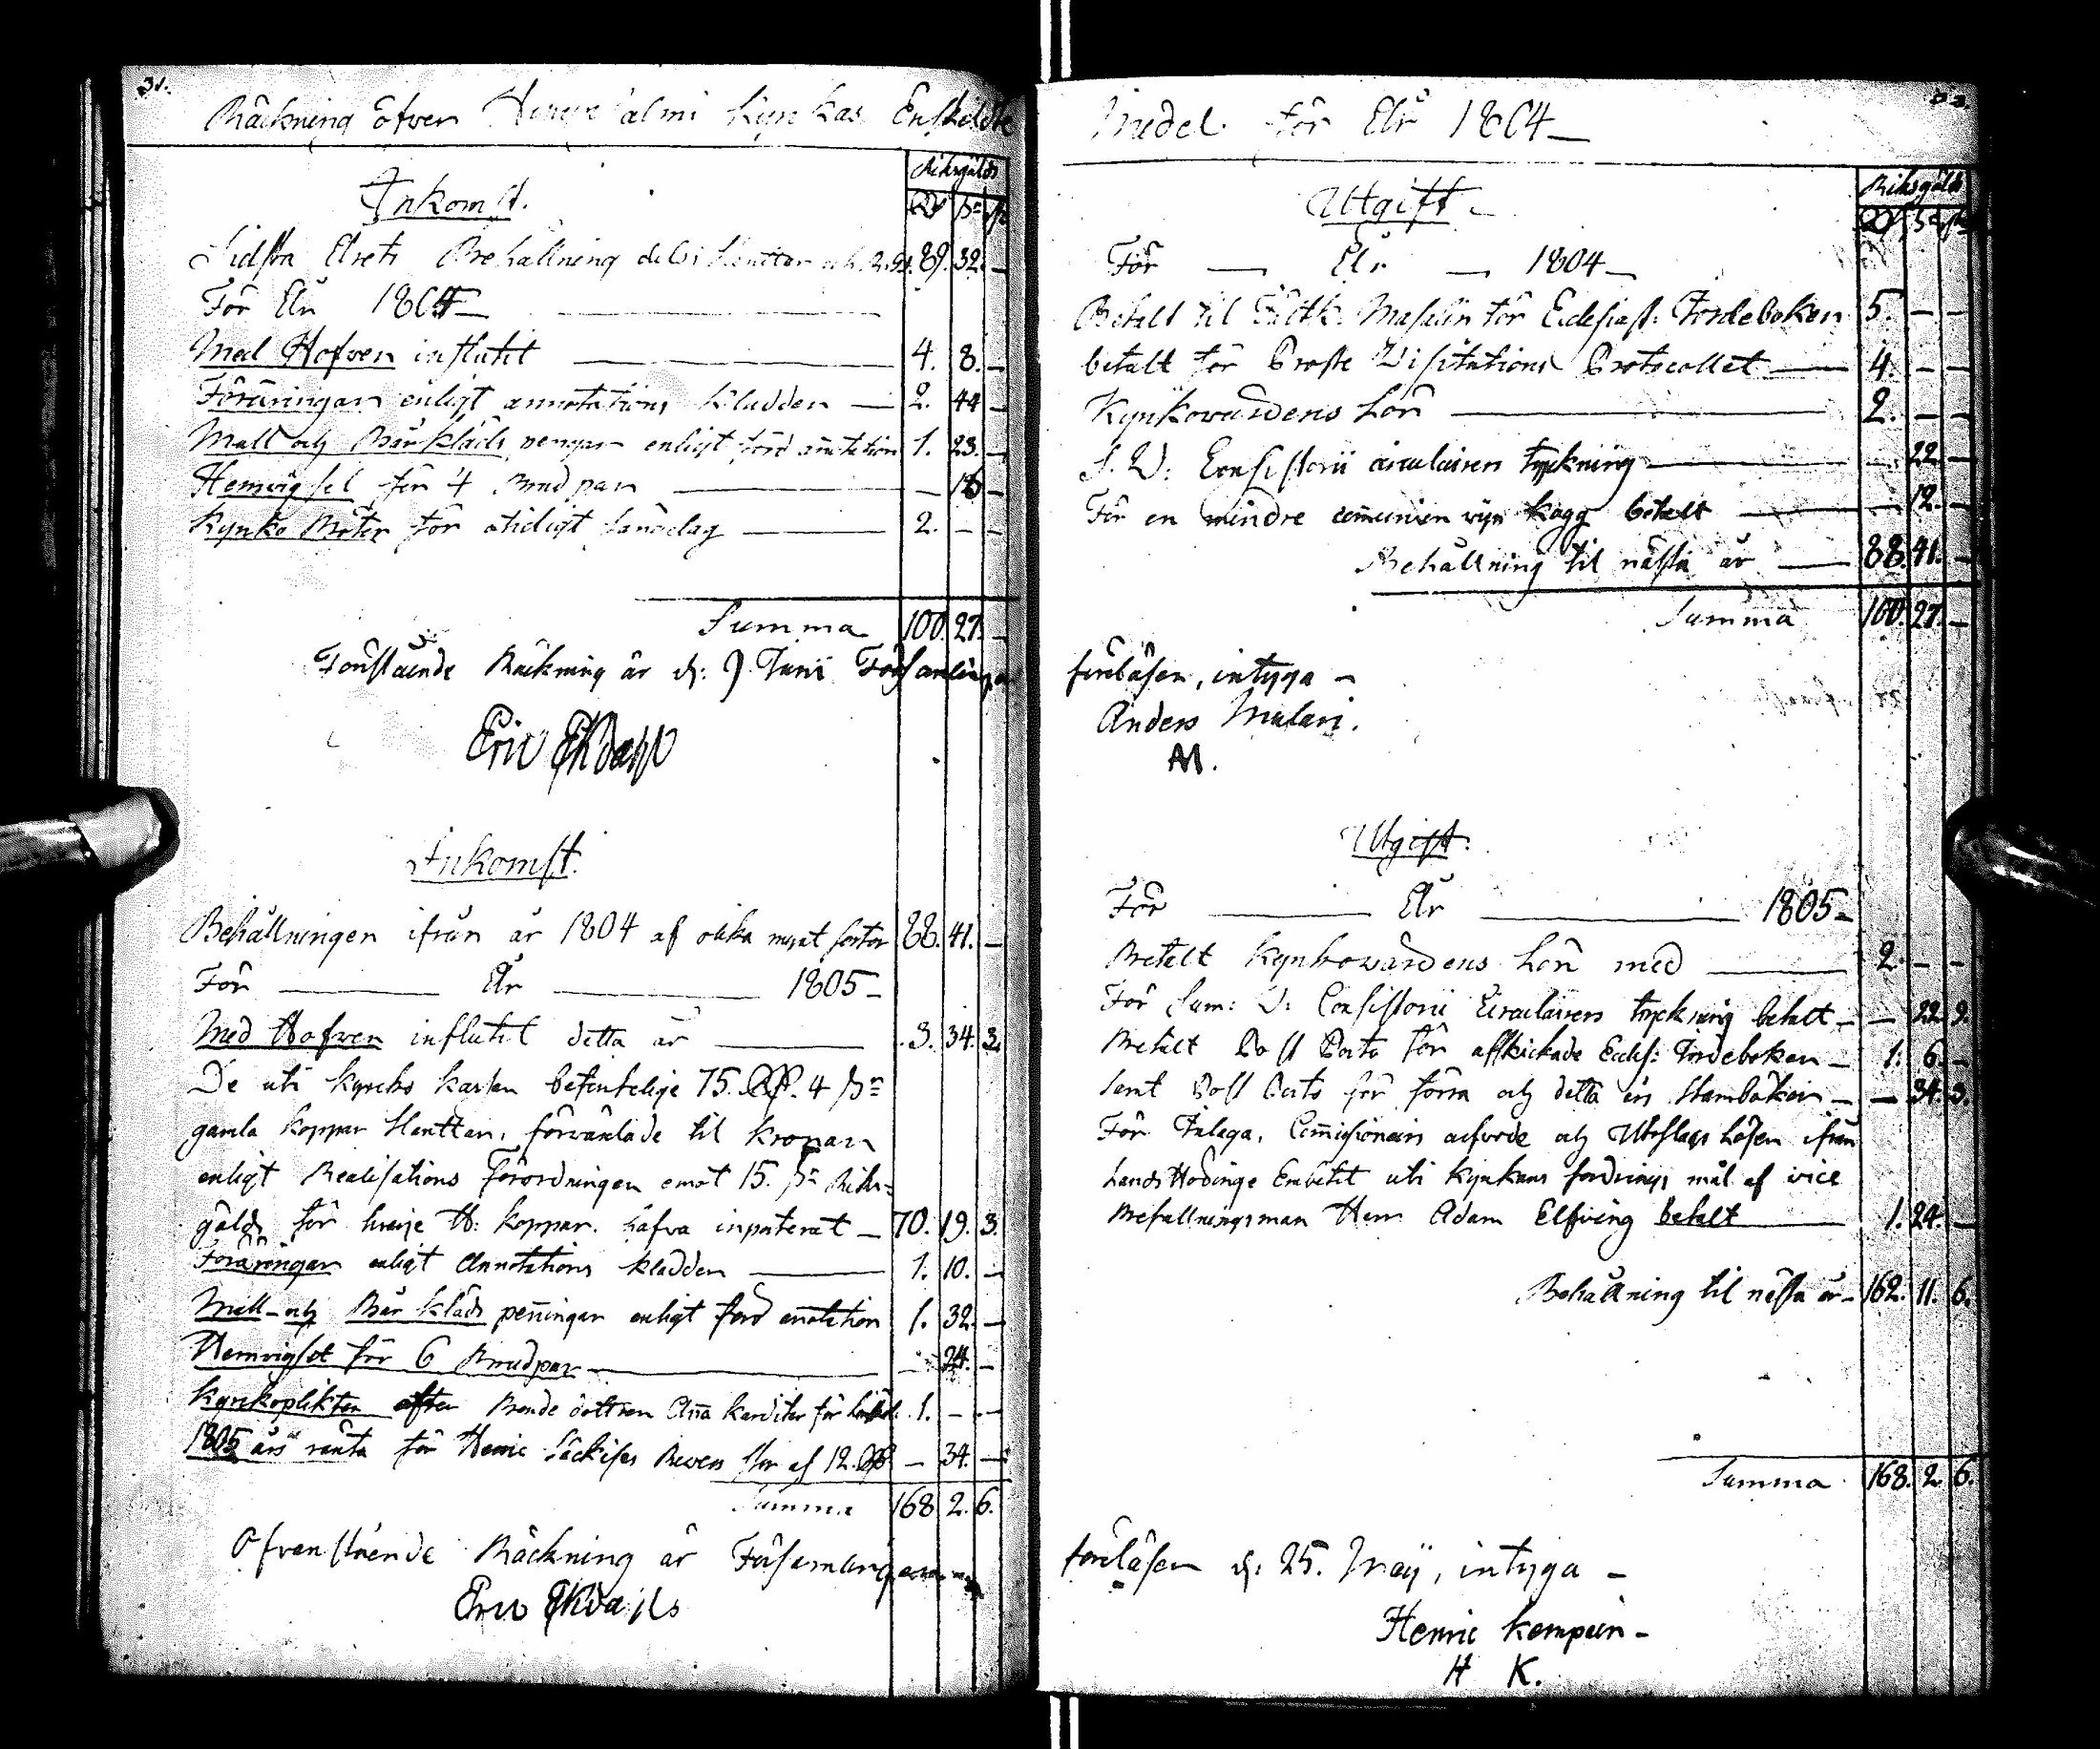 31.
Räckning öfver kyrkas Enskildte
Inkomst.
Riksgälds
Sidsta Årets Behållning 89. 32. —
För År 1804 —
Med Hofven influtit — 4. 8. —
Föräringar enligt annotations kladden — 2. 44 —
Mull och Bårkläds penngar enligt förd annotation 1. 23. —
Hemvigsel för 4 Brudpar — — 16 —
Kyrko Böter för otidigt — 2. — —
Summa 100. 27. —
Förestående Räckning är d: 9 Junii Församlingen
Eric
Inkomst.
Behållningen ifrån år 1804 af olika 88. 41. —
För — År — 1805 —
Med Hofven influtit detta år — 3. 34. 3.
De uti kyrcko kassan befintelige 75. RD. 4 s
gamla koppar Slanttar, förvanlade til kronan
enligt Realisations Förordningen emot 15. s Riks-
gälds för hvarje lb: koppar. hafva inputerat — 70. 19. 3.
Föräringar enligt Annotations kladden — 1. 10. —
Mull- och Bår kläds penningar enligt förd annotation 1. 32. —
Hemvigsel för 6 Brudpar — — 24. —
Kyrkoplikten efter Bonde dottren Anna för 1. — —
1805 års ränta för Henric af 12. RD — 34. —
Summa 168 2. 6.
Ofvanstående Räckning är Församlingen
Eric
Medel för År 1804 —
Utgift —
Riksgälds
För — År — 1804 —
Betalt til Masalin för Ecclesiast: Jordeboken 5. — —
betalt för Prosts Visitations Protocollet — 4. — —
Kyrkovärdens Lön — 2. — —
S. V: Consistorii circulairers tryckning — — 22 —
För en mindre communion vijn kagg betalt — — 12. —
Behållning til nästa år — 88. 41. —
Summa 100. 27. —
föreläsen, intyga —
Anders Mulari.
AM.
Utgift.
För — År — 1805 —
Betalt Kyrkovärdens Lön med — 2 — —
För Sam: V: Consistorii Circulairers tryckning betalt — — 22. 9.
Betalt Post Porto för afskickade Eccles: Jordeboken — 1. 6. —
samt Post Porto för förra och detta års Stamböcker — — 34. 3.
För Inlaga, Commissionairs arfvode och Utslags Lösen ifrån
Lands Höfdinge Embetet uti Kyrkans fordrings mål af vice
Befallningsman Herr Adam Elfving betalt — 1. 24. —
Behållning til nästa år — 162. 11. 6.
Summa 168. 2 6.
föreläsen d: 25. Maij, intyga —
Henric Kempain —
H K.